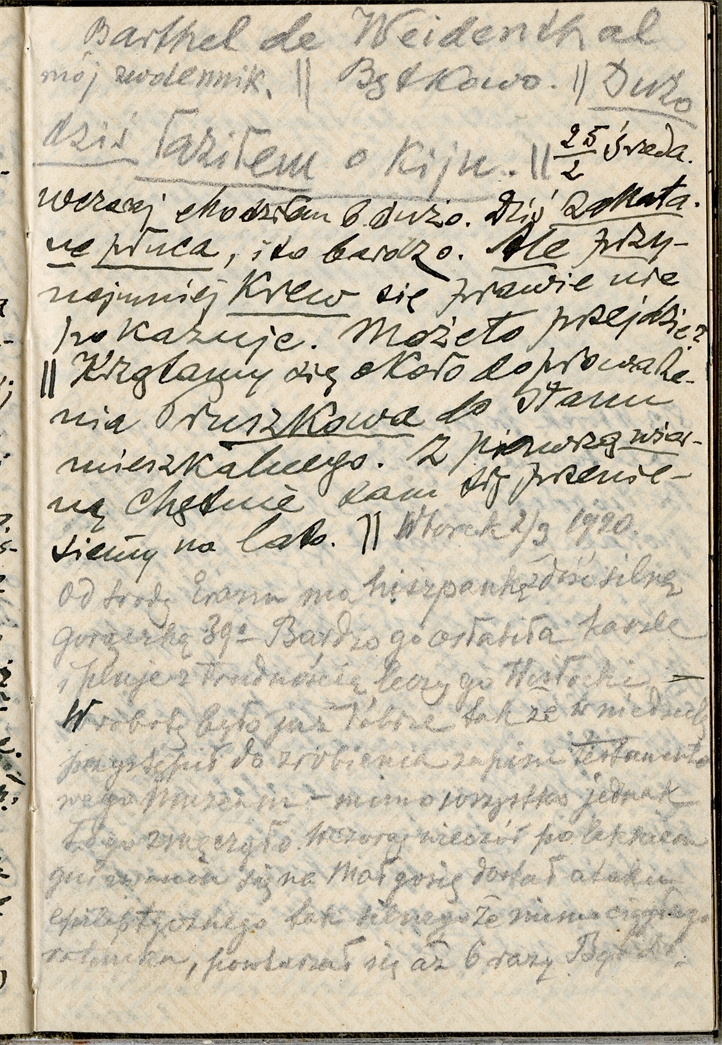 Barthel de Weidenthal
mój zwolennik. || Bątkowo. || Dużo
dziś łaziłem o kiju. || 25/2 środa.
wczoraj chodziłem b. dużo. Dziś
płuca, i to bardzo. Ale przy-
najmniej krew się prawie nie
pokazuje. Może to przejdzie?
|| Krzątamy się około doprowadze-
nia Pruszkowa do stanu
mieszkalnego. Z pierwszą wios-
ną chętnie tam się przenie-
siemy na lato. || Wtorek 2/3 1920.
Od środy Erazm ma hiszpankę dość silną
gorączkę 39° Bardzo go osłabiła kaszle
i pluje z trudnością leczy go
W sobotę było już dobrze tak że w niedzielę
przystąpił do zrobienia zapisu testamento
wego Muzeum – mimo wszystko jednak
to go zmęczyło. Wczoraj wieczór po lekkiem
się na Małgosię dostał ataku
epileptycznego tak silnego że mimo ciągłego
ratunku, powtarzał się aż 6 razy